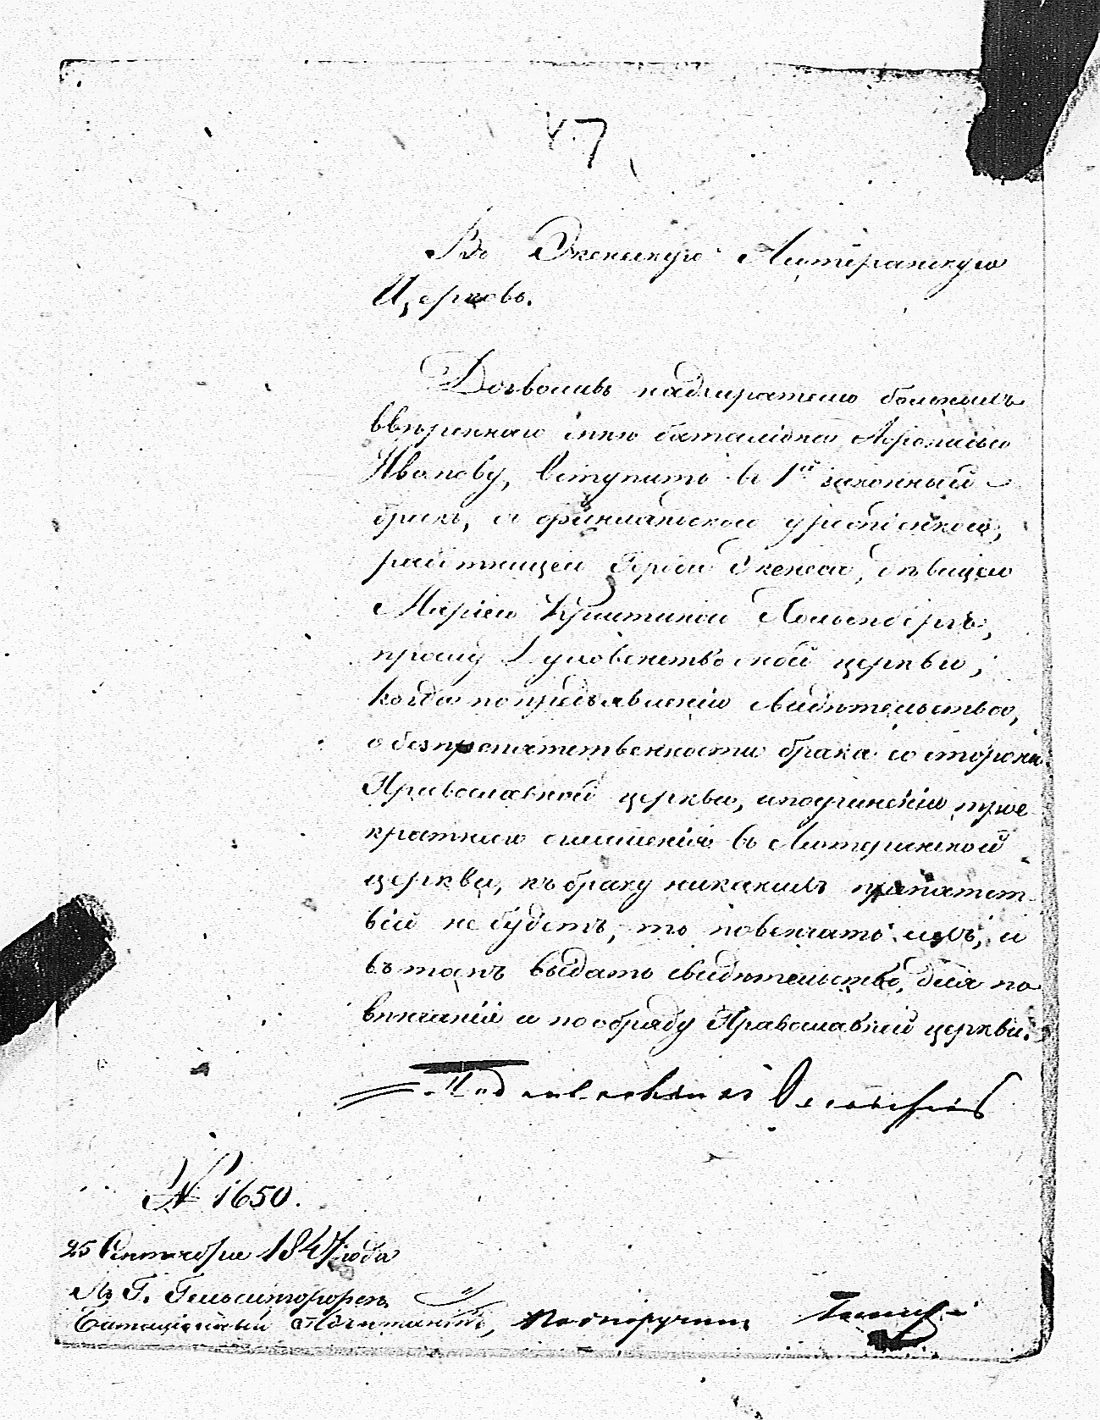 47
Въ Экенескую Лютеранскую
Церковь.
Дозволивъ надзирателю больныхъ
ввѣреннаго мнѣ баталіона
Иванову, вступить въ 1й законный
бракъ, съ финляндскою уроженкою,
города Экенеса, дѣвицею
Маріею Кристиною
прошу Духовенство оной церкви,
когда по предъявленіи свидѣтельства,
о безпрепятственности брака со стороны
Православной церкви, и по учиненіи трое
кратнаго оглашенія въ Лютеранской
церкви, къ браку никакихъ препятст
вій не будетъ, то повенчать ихъ, и
въ томъ выдать свидѣтельство, для по
вѣнчанія и по обряду Православной церкви.
Подполковникъ
№ 1650.
25 Сентября 1847 года
Г. Гельсингфорсъ
Баталіонный Адъютантъ, Подпоручикъ